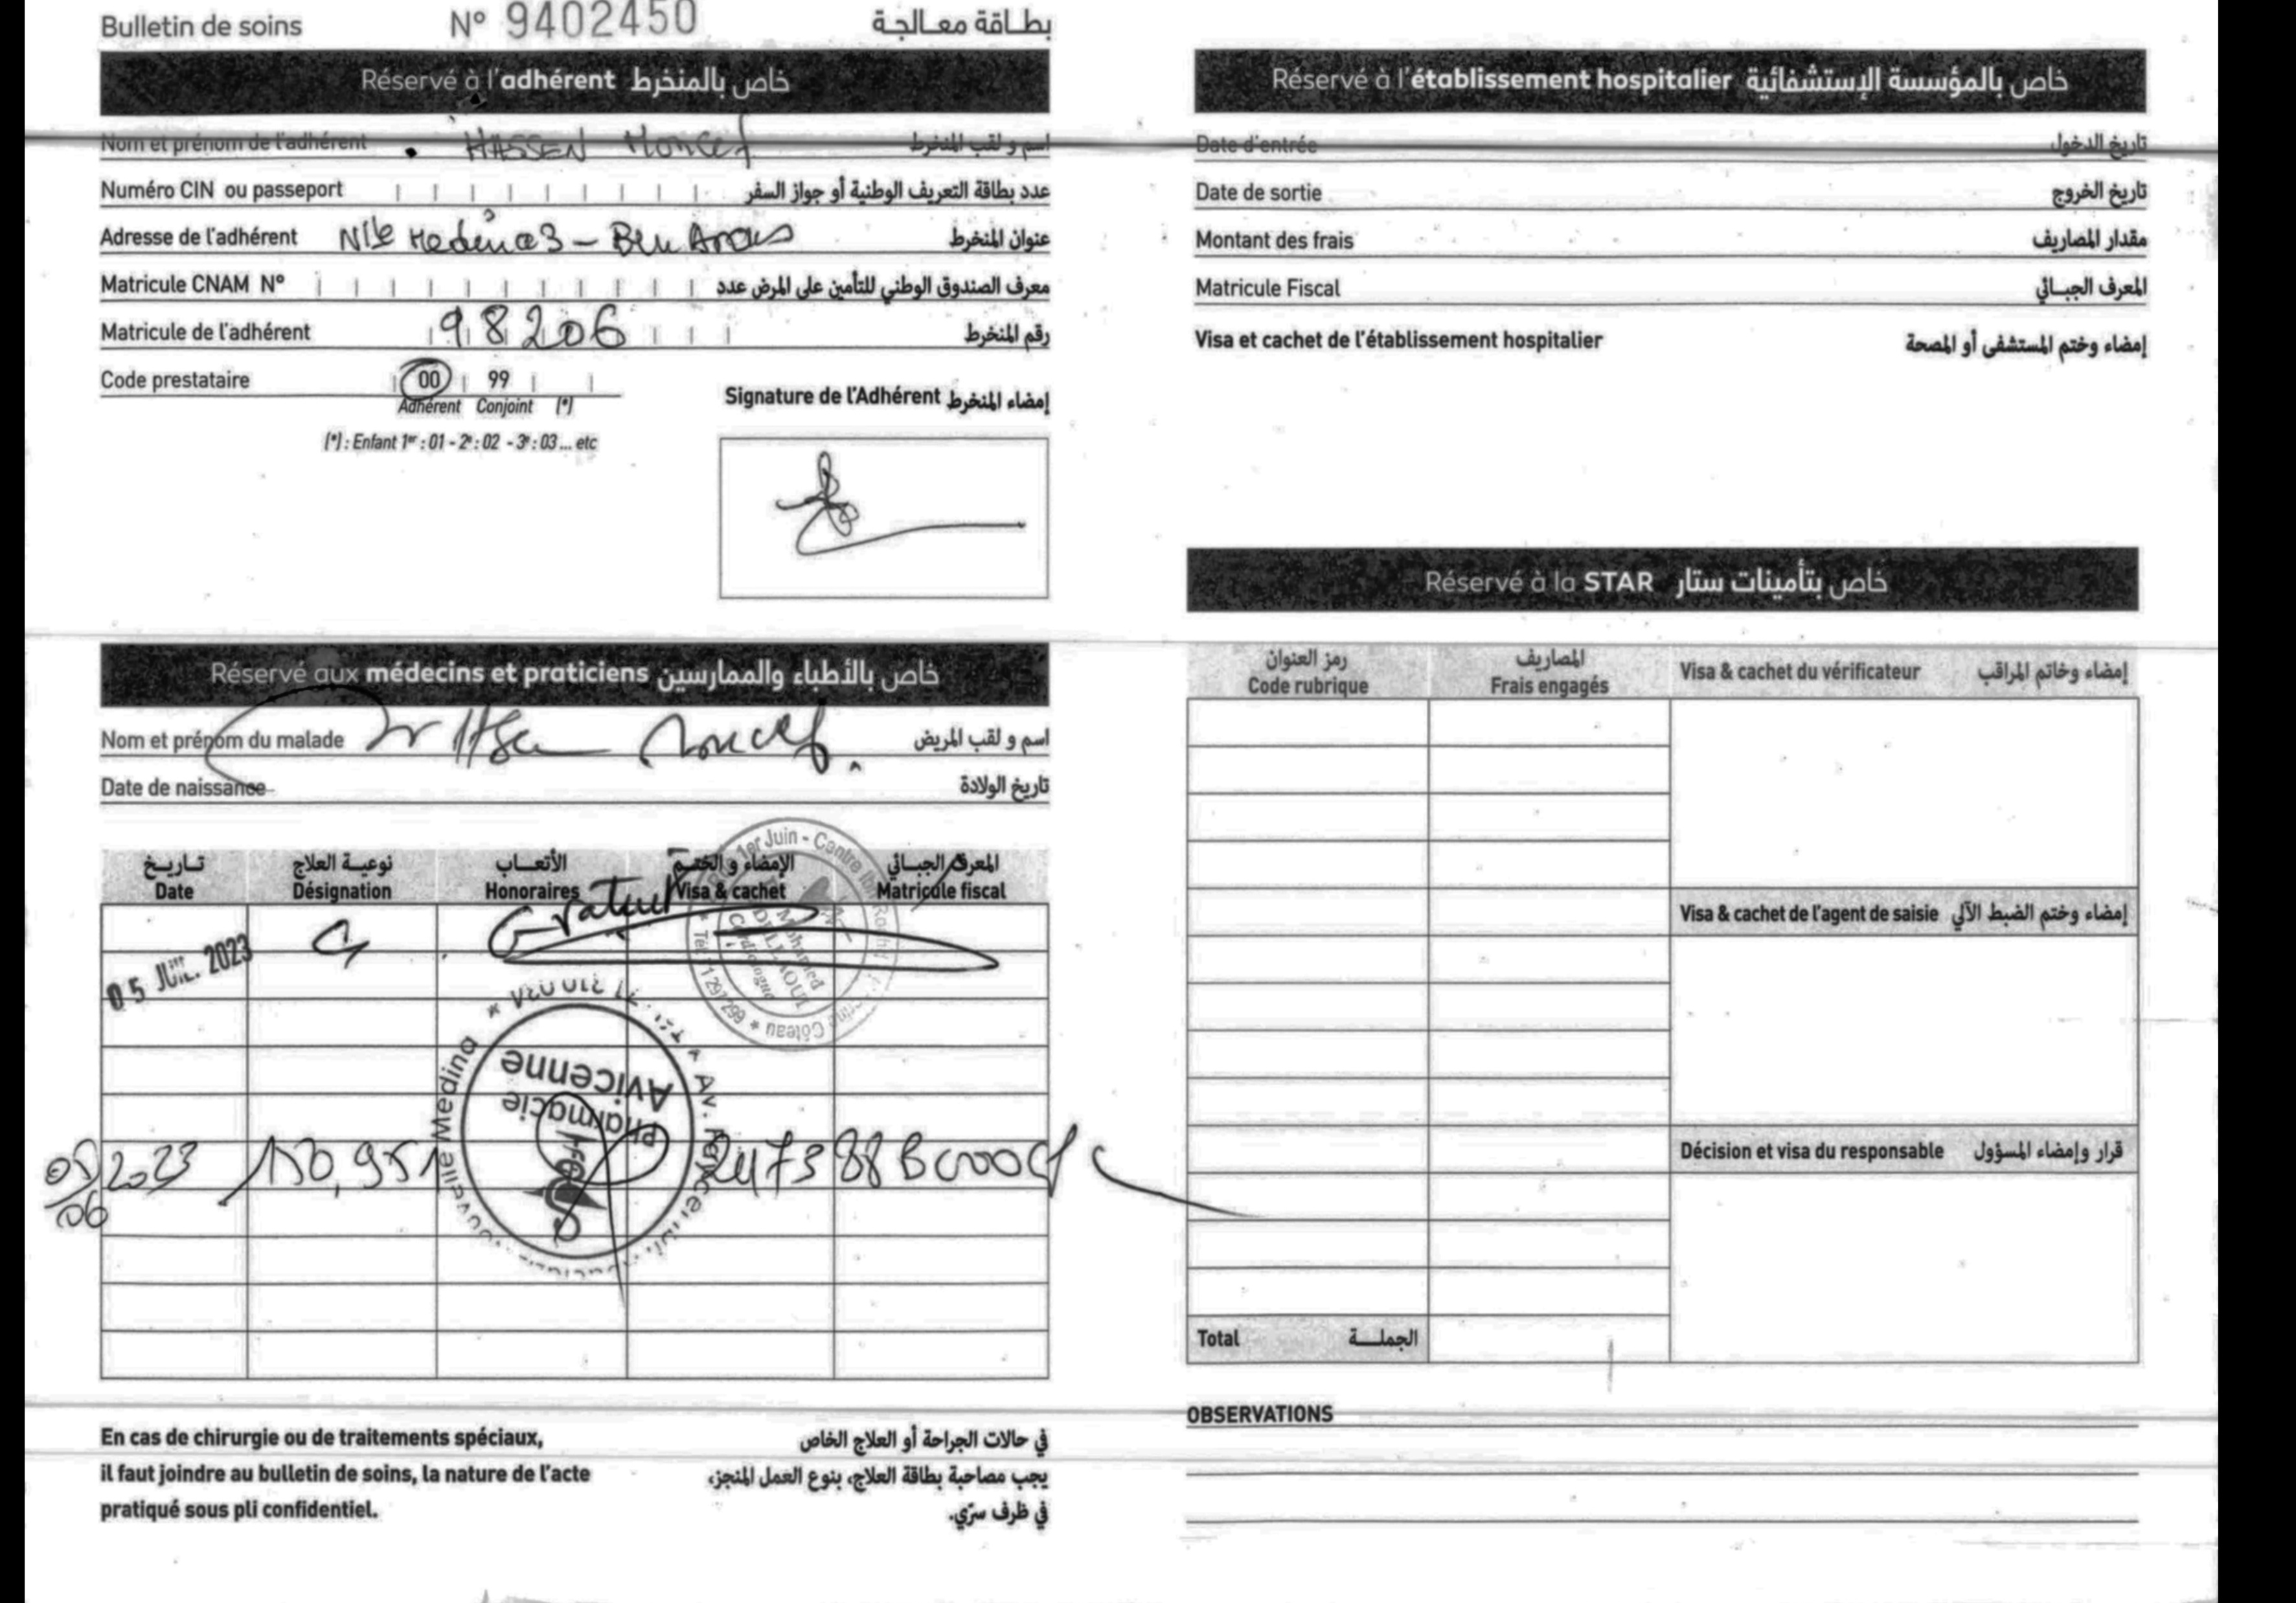 Bulletin de soins N° 9402450 بطاقة معالجة
Réservé à l'adhérent خاص بالمنخرط
Nom et prénom de l'adhérent HASSEN Moncef اسم و لقب المنخرط
Numéro CIN ou passeport عدد بطاقة التعريف الوطنية أو جواز السفر
Adresse de l'adhérent Nlle Medina 3 - Ben Arous عنوان المنخرط
Matricule CNAM N° معرف الصندوق الوطني للتأمين على المرض عدد
Matricule de l'adhérent 98206 رقم المنخرط
Code prestataire 00 99
Adhérent Conjoint (*)
(*) : Enfant 1er : 01 - 2e : 02 - 3e : 03 ... etc
Signature de l'Adhérent إمضاء المنخرط
Réservé aux médecins et praticiens خاص بالأطباء والممارسين
Nom et prénom du malade Moncef اسم و لقب المريض
Date de naissance تاريخ الولادة
تاريخ نوعية العلاج الأتعاب الإمضاء و الختم المعرف الجبائي
Date Désignation Honoraires Visa & cachet Matricule fiscal
05 JUIL. 2023 Gratuit
1er Juin - Centre Ibn
Mohamed
Cardiologue
Pharmacie
Avicenne
Nouvelle Medina
05/06 2023 150,951
En cas de chirurgie ou de traitements spéciaux,
il faut joindre au bulletin de soins, la nature de l'acte
pratiqué sous pli confidentiel.
في حالات الجراحة أو العلاج الخاص
يجب مصاحبة بطاقة العلاج، بنوع العمل المنجز،
في ظرف سرّي.
Réservé à l'établissement hospitalier خاص بالمؤسسة الإستشفائية
Date d'entrée تاريخ الدخول
Date de sortie تاريخ الخروج
Montant des frais مقدار المصاريف
Matricule Fiscal المعرف الجبائي
Visa et cachet de l'établissement hospitalier إمضاء وختم المستشفى أو المصحة
Réservé à la STAR خاص بتأمينات ستار
رمز العنوان المصاريف
Code rubrique Frais engagés Visa & cachet du vérificateur إمضاء وخاتم المراقب
Visa & cachet de l'agent de saisie إمضاء وختم الضبط الآلي
Décision et visa du responsable قرار وإمضاء المسؤول
Total الجملة
OBSERVATIONS